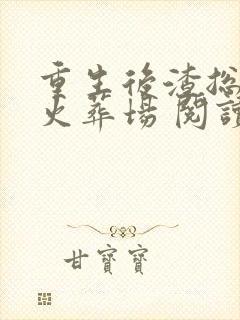 重生後渣
火葬場 閱讀
甘寶寶